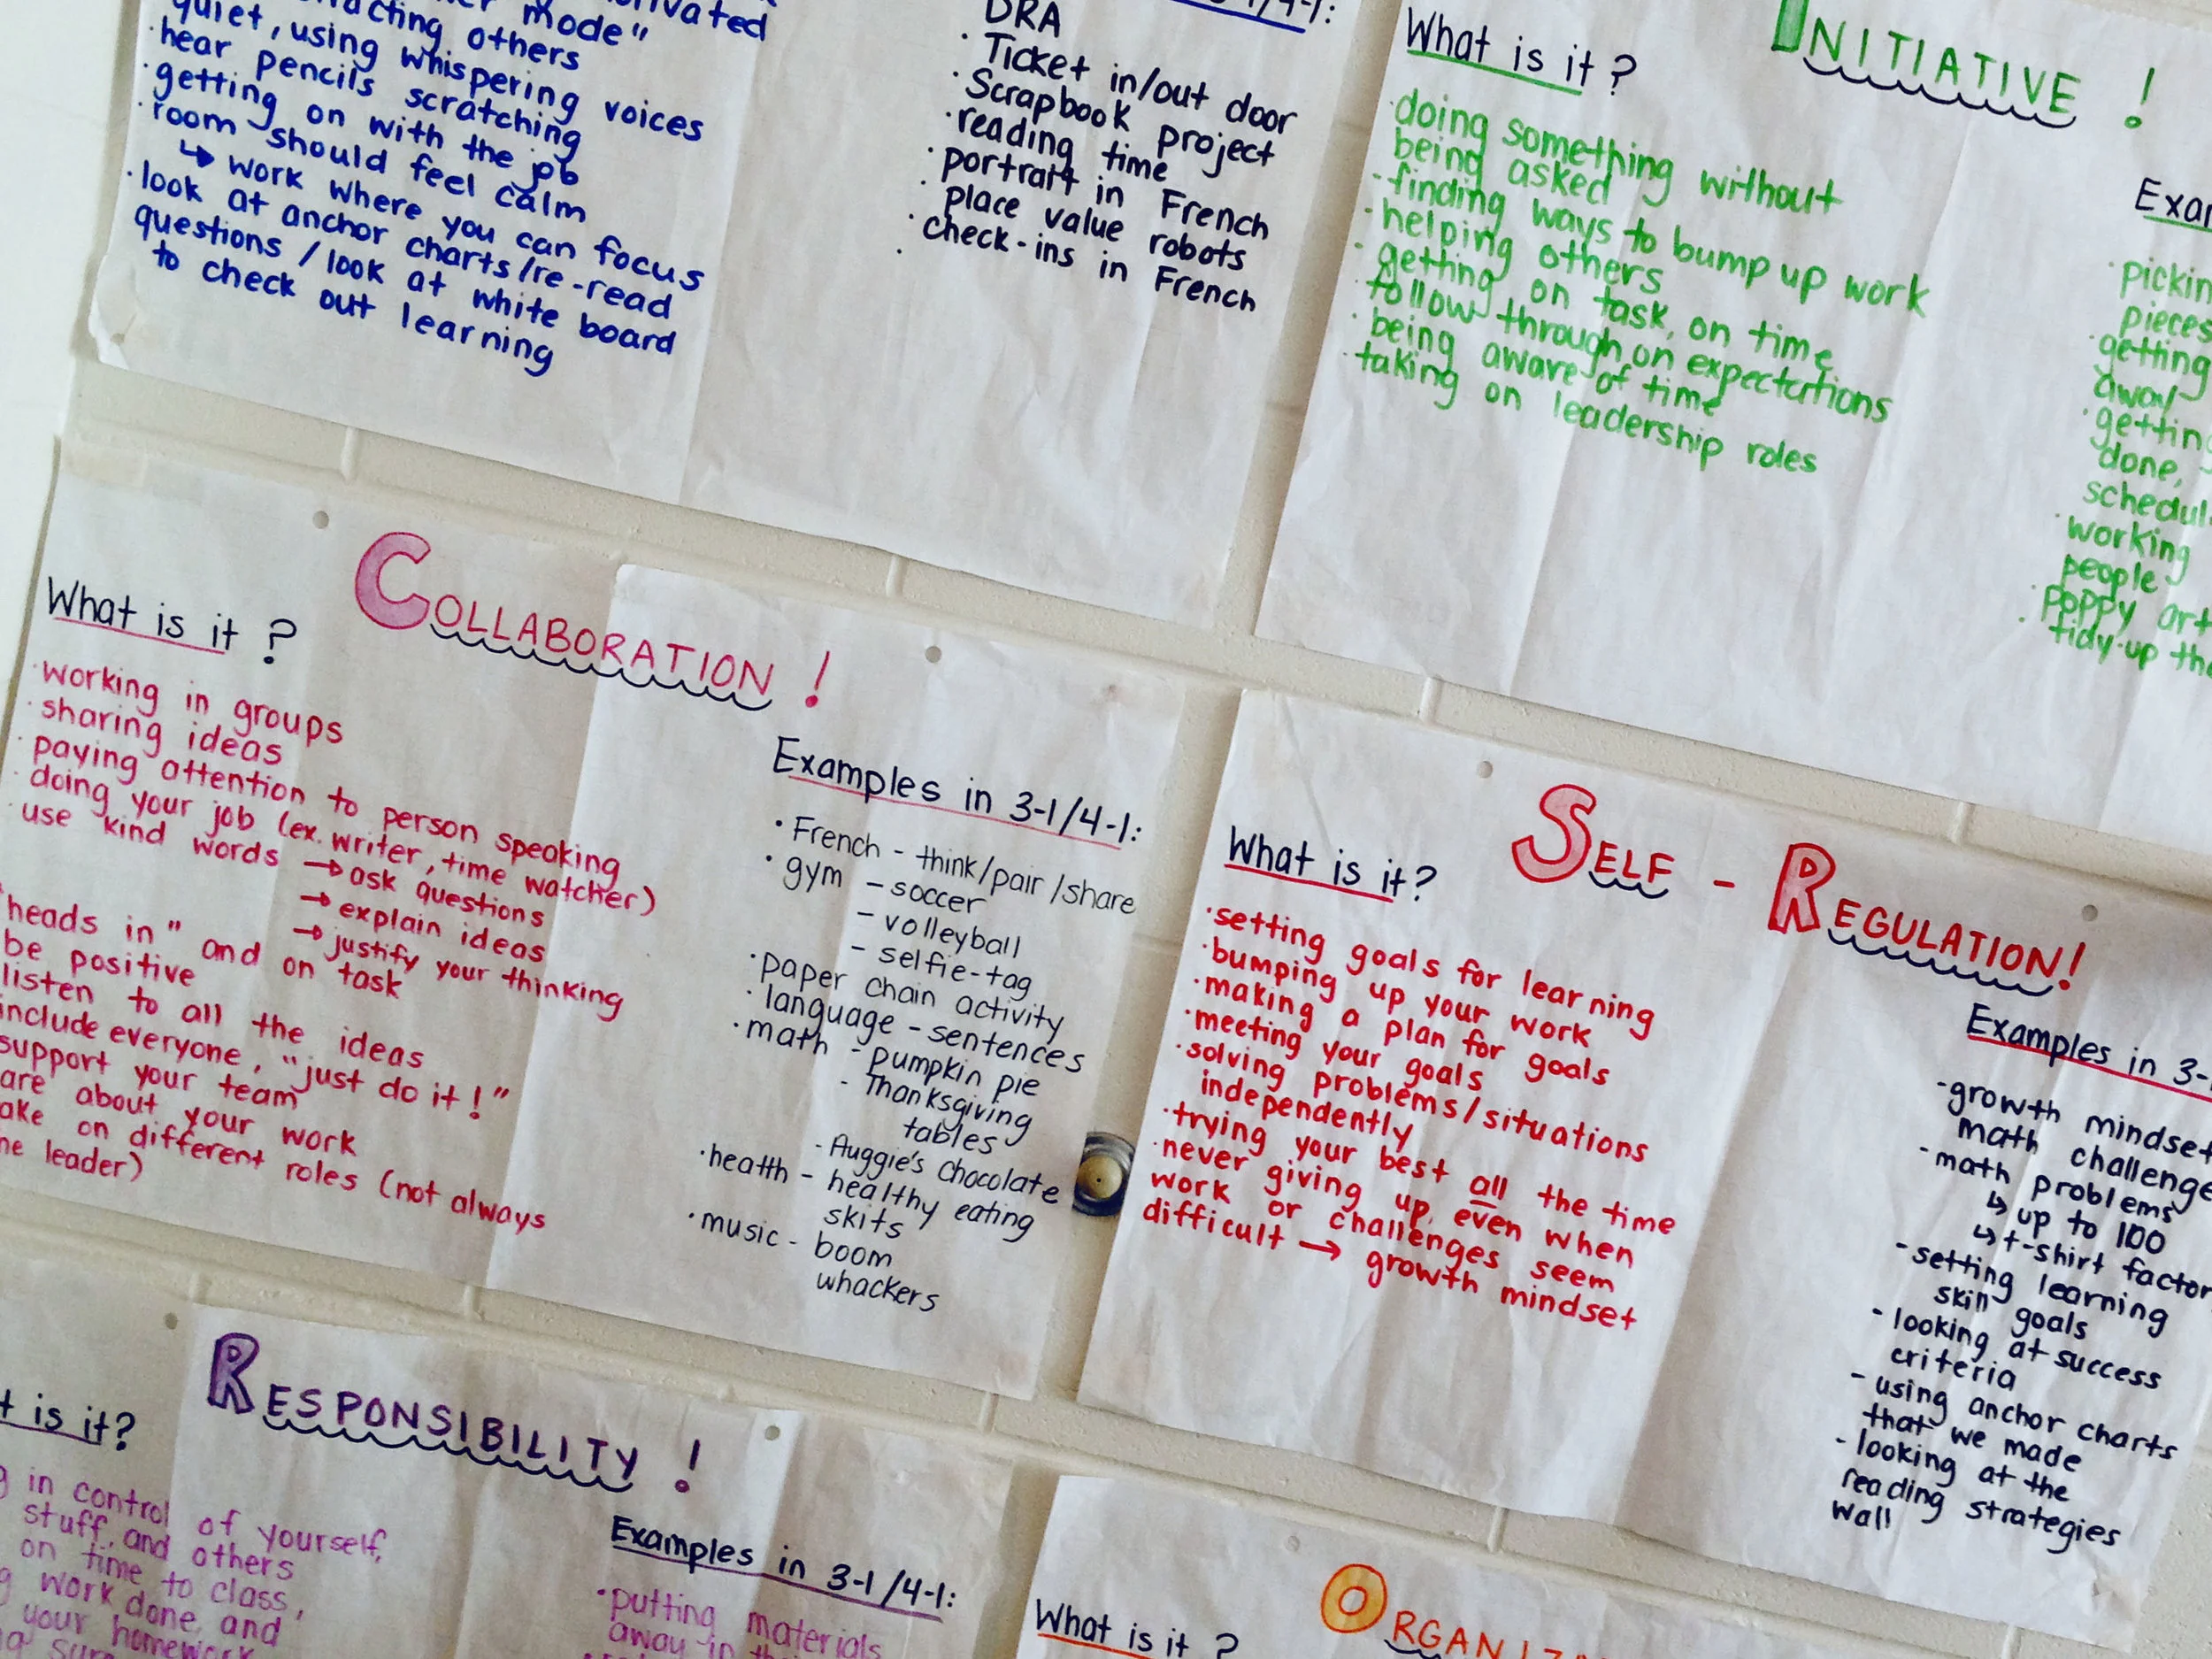 mode"
others
quiet, using whispering voices
·hear pencils scratching
·getting on with the job
·room should feel calm
↳ work where you can focus
·look at anchor charts/re-read
questions / look at white board
to check out learning
DRA
·Ticket in/out door
·Scrapbook project
·reading time
·portrait in French
·place value robots
·check-ins in French
INITIATIVE !
What is it ?
·doing something without
being asked
·finding ways to bump up work
·helping others
·getting on task, on time
·follow through on expectations
·being aware of time
·taking on leadership roles
pieces
·getting
away
·getting
done,
·working
people
·Poppy art
·tidy-up
COLLABORATION !
What is it ?
·working in groups
·sharing ideas
·paying attention to person speaking
·doing your job (ex. writer, time watcher)
·use kind words → ask questions
→ explain ideas
→ justify your thinking
"heads in" and on task
be positive
listen to all the ideas
include everyone, "just do it!"
support your team
about your work
on different roles (not always
leader)
Examples in 3-1/4-1:
·French - think/pair/share
·gym - soccer
- volleyball
- selfie-tag
·paper chain activity
·language - sentences
·math - pumpkin pie
- Thanksgiving
tables
- Auggie's Chocolate
·health - healthy eating
skits
·music - boom
whackers
SELF - REGULATION!
What is it?
·setting goals for learning
·bumping up your work
·making a plan for goals
·meeting your goals
·solving problems/situations
independently
·trying your best all the time
·never giving up, even when
work or challenges seem
difficult → growth mindset
Examples in 3-
-growth mindset
math challenge
-math problems
↳ up to 100
↳ t-shirt
-setting learning
skill goals
-looking at success
criteria
-using anchor charts
that we made
-looking at the
reading strategies
wall
RESPONSIBILITY !
is it?
in control of yourself,
stuff, and others
on time to class,
work done, and
your homework
Examples in 3-1/4-1:
·putting materials
away in
What is it ?